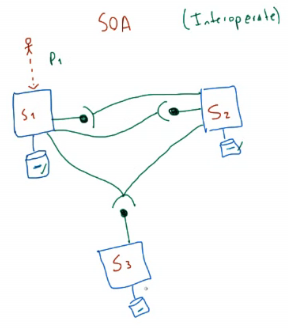 SOA
(Interoperate)
P1
S1
S2
S3